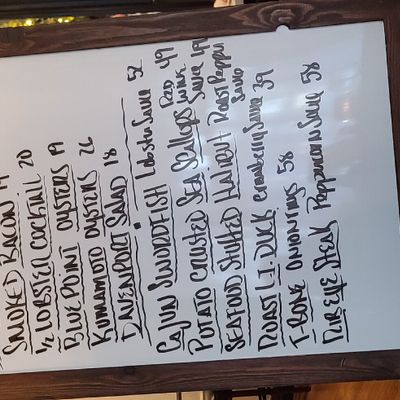 SMOKED BACON 19
1/2 LOBSTER COCKTAIL 20
BLUE POINT OYSTERS 19
KUMAMOTO OYSTERS 26
DAVENPORT SALAD 18
CAJUN SWORDFISH LOBSTER SAUCE 52
POTATO CRUSTED SEA SCALLOPS RED WINE SAUCE 49
SEAFOOD STUFFED HALIBUT ROAST PEPPER SAUCE 49
ROAST L.I. DUCK CRANBERRY SAUCE 39
T-BONE ONION RINGS 58
RIB EYE STEAK PEPPERCORN SAUCE 58